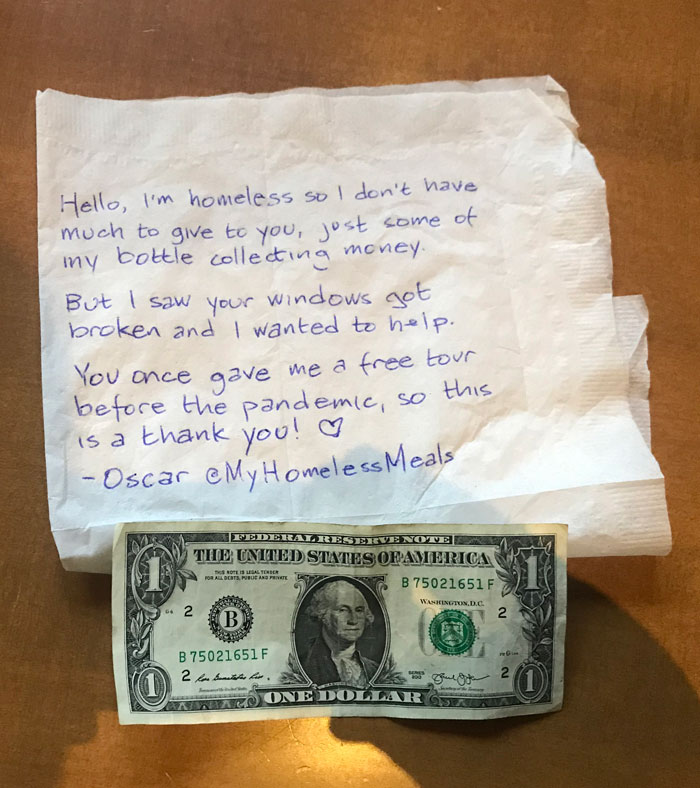 Hello, I'm homeless so I don't have
much to give to you, just some of
my bottle collecting money.
But I saw your windows got
broken and I wanted to help.
You once gave me a free tour
before the pandemic, so this
is a thank you! ♡
-Oscar @MyHomelessMeals
FEDERAL RESERVE NOTE
THE UNITED STATES OF AMERICA
THIS NOTE IS LEGAL TENDER
FOR ALL DEBTS, PUBLIC AND PRIVATE
B 75021651 F
WASHINGTON, D.C.
2 B 2
B 75021651 F
2 SERIES 2013 2
1 ONE DOLLAR 1